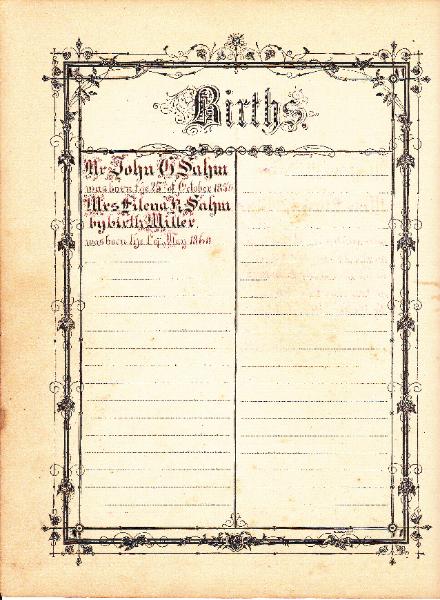 Births.
Mr John G Sahm
was born the 25th of October 1856
Mrs Elena R. Sahm
by birth Miller
was born the 1st May 1860